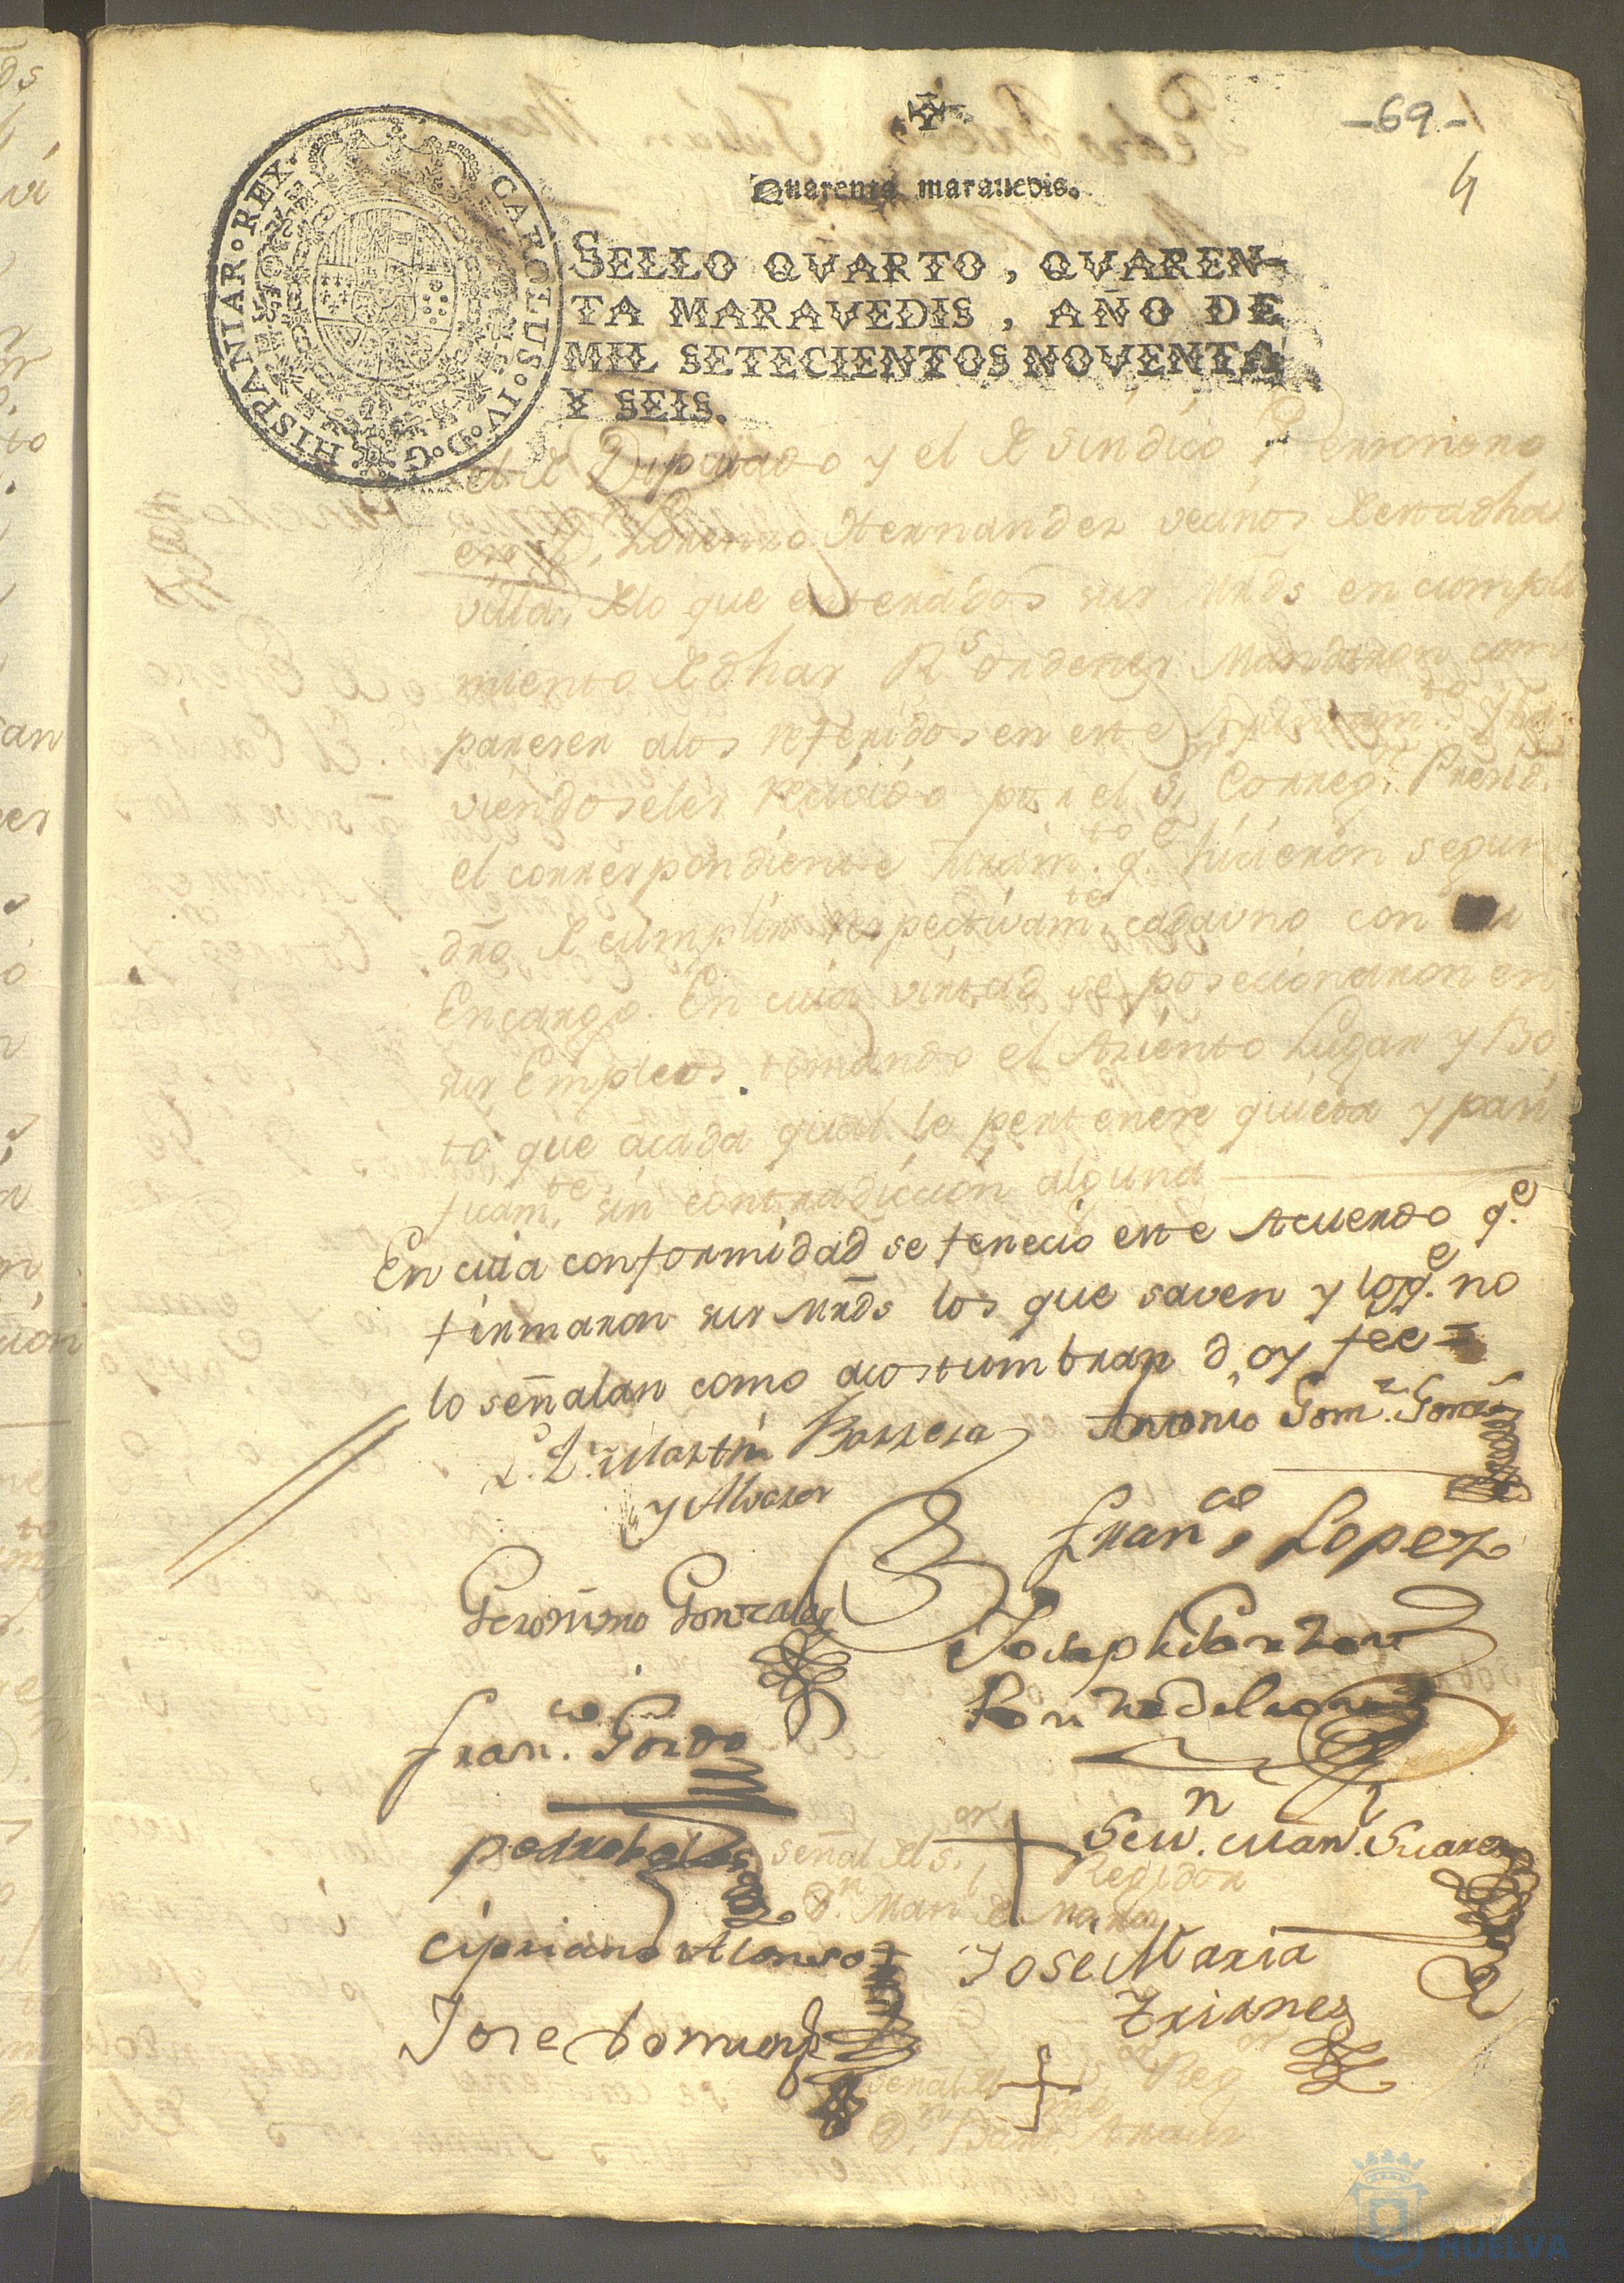 -69-
4
Quarenta maravedis.
CAROLUS·IV·D·G·HISPANIAR·REX·
SELLO QVARTO, QVAREN-
TA MARAVEDIS, AÑO DE
MIL SETECIENTOS NOVENTA
Y SEIS.
Diputado y el sindico Perronero
Lorenzo Hernandez vecinos
villa, que enterados sus mrds en cumpli
miento dhas Rs ordenes Mandaron com
pareser alos referidos en este Aiuntamto. y ha
viendoseles recivido por el Sr Correg.r Presid.
el correspondiente juramto. qe. hicieron segun
dro cumplir respectivamte. cada uno con su
Encargo. En cuia virtud se posecionaron en
sus Empleos tomando el Asiento Lugar y Bo
to que acada qual le pertenese quieta y pasi
ficamte. sin contradiccion alguna
En cuia conformidad se fenecio este Acuerdo q.e
firmaron sus mrds los que saven y loqe. no
lo señalan como acostumbran doy fee =
Martin Barrera
y Alvarez
Antonio Gomz.
Franco. Lopez
Geronimo Gonzales
Joseph
Ponze de Leon
Franco. Gordo
señal
Regidor
Dn. Man
Man. Suares
Cipriano Alonso
Jose Maria
Trianes
Jose
señal
Reg
Dn.
HUELVA